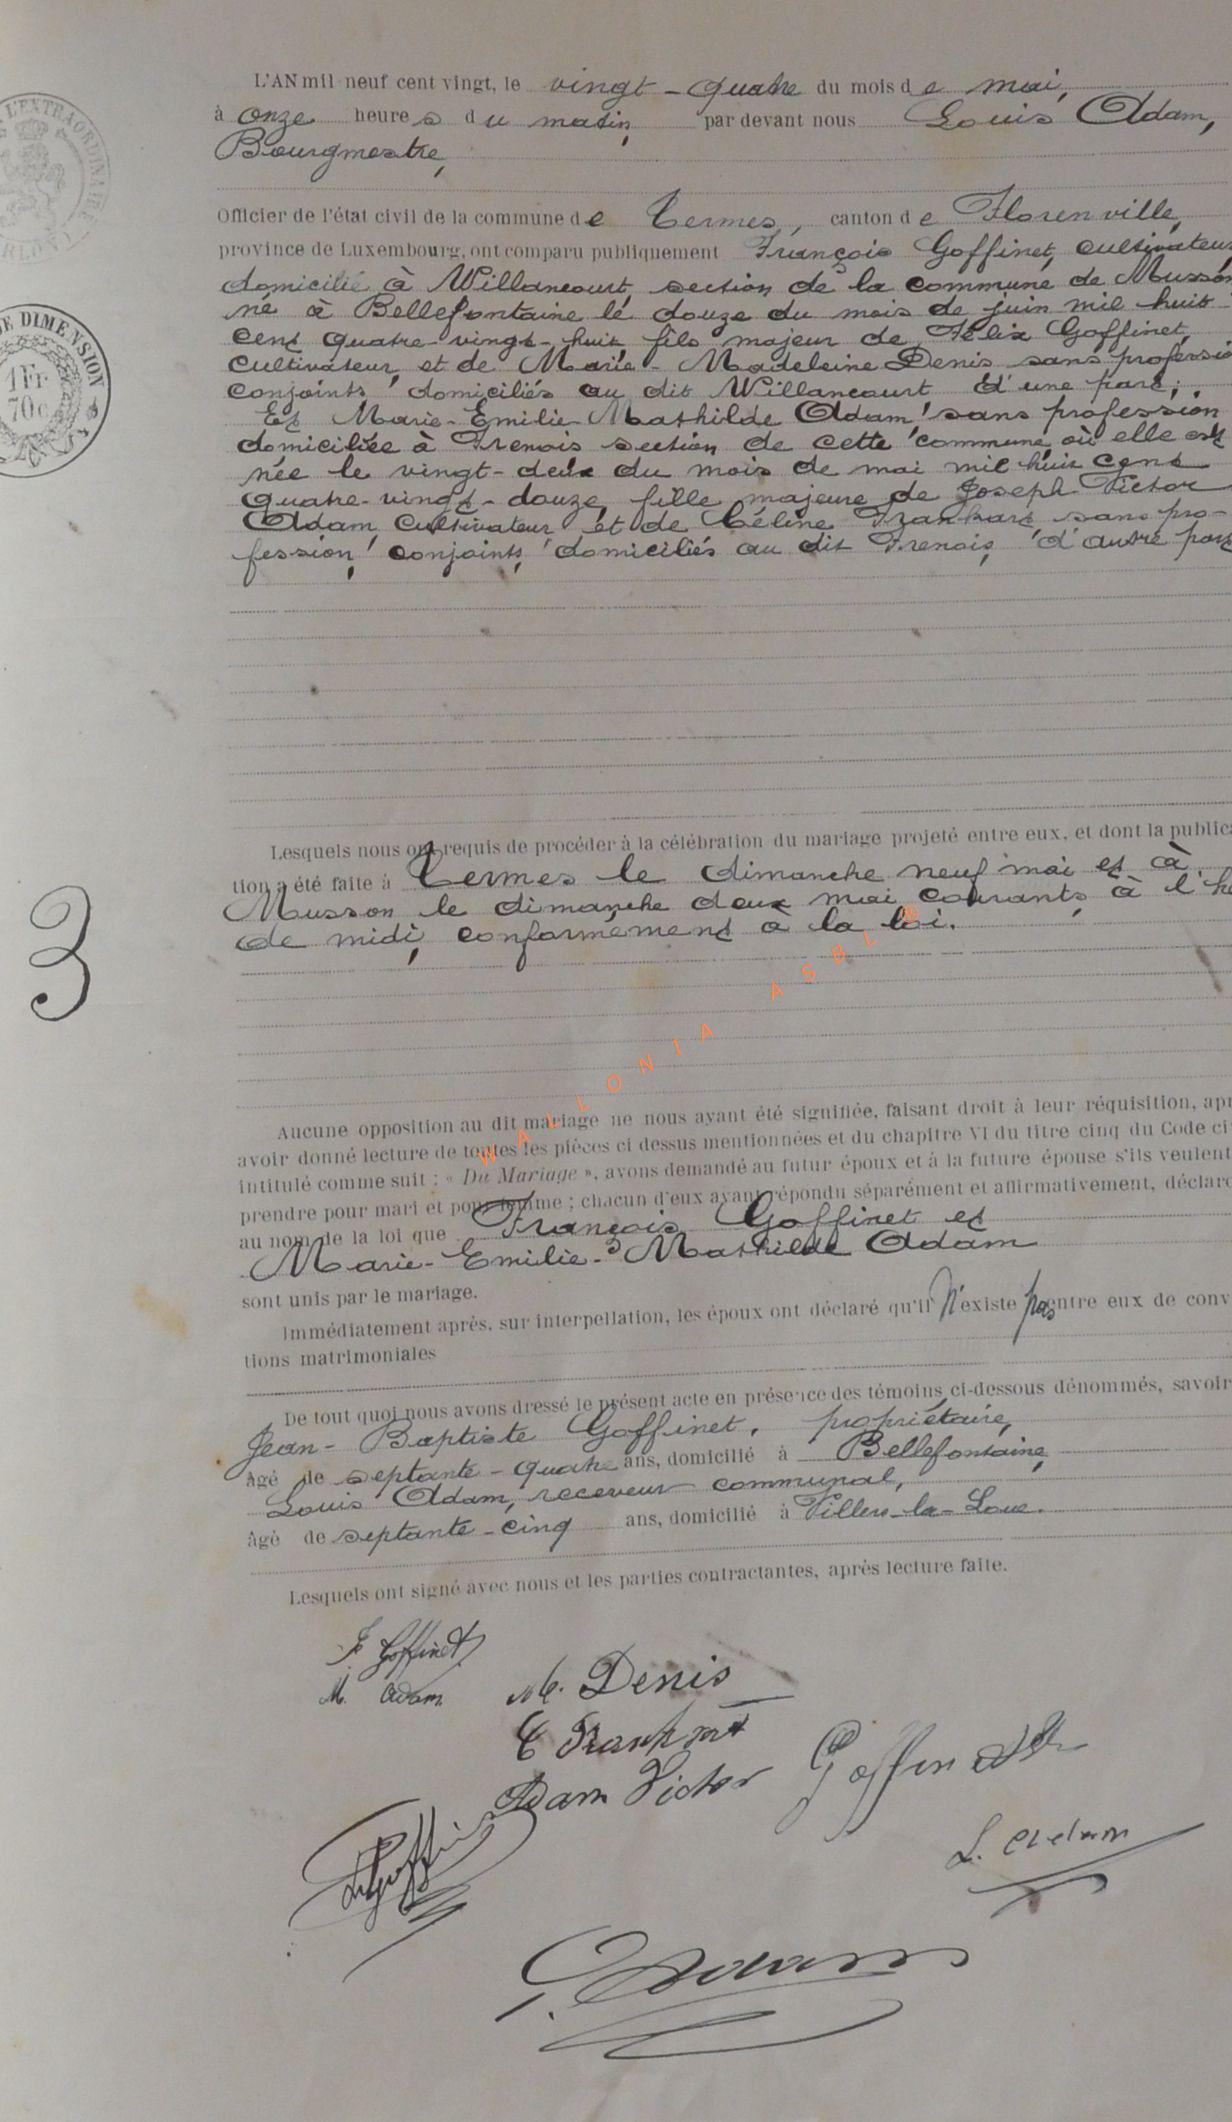 L'AN mil neuf cent vingt, le vingt-quatre du mois de mai,
à onze heures du matin, par devant nous Louis Adam,
Bourgmestre,
Officier de l'état civil de la commune de Termes, canton de Florenville,
province de Luxembourg, ont comparu publiquement François Goffinet, cultivateur,
domicilié à Willancourt, section de la commune de Musson
né à Bellefontaine le douze du mois de juin mil huit
cent quatre-vingt-huit, fils majeur de Félix Goffinet,
cultivateur, et de Marie-Madeleine Denis sans professio
conjoints, domiciliés au dit Willancourt d'une part;
Et Marie-Emilie-Mathilde Adam, sans profession
domiciliée à Frenois section de cette commune, où elle est
née le vingt-deux du mois de mai mil huit cent
quatre-vingt-douze, fille majeure de Joseph Victor
Adam, cultivateur, et de Céline Frankart sans pro-
fession, conjoints, domiciliés au dit Frenois, d'autre part
Lesquels nous ont requis de procéder à la célébration du mariage projeté entre eux, et dont la publica
tion a été faite à Termes le dimanche neuf mai et à
Musson le dimanche deux mai courants, à l'he
de midi, conformément à la loi.
Aucune opposition au dit mariage ne nous ayant été signifiée, faisant droit à leur réquisition, apr
avoir donné lecture de toutes les pièces ci dessus mentionnées et du chapitre VI du titre cinq du Code ci
intitulé comme suit : « Du Mariage », avons demandé au futur époux et à la future épouse s'ils veulent
prendre pour mari et pour femme ; chacun d'eux ayant répondu séparément et affirmativement, déclaro
au nom de la loi que François Goffinet et
Marie-Emilie-Mathilde Adam
sont unis par le mariage.
Immédiatement après, sur interpellation, les époux ont déclaré qu'il N'existe pas entre eux de conv
tions matrimoniales
De tout quoi nous avons dressé le présent acte en présence des témoins ci-dessous dénommés, savoir
Jean-Baptiste Goffinet, propriétaire,
âgé de septante-quatre ans, domicilié à Bellefontaine,
Louis Adam, receveur communal,
âgé de septante-cinq ans, domicilié à Villers-la-Loue.
Lesquels ont signé avec nous et les parties contractantes, après lecture faite.
F. Goffinet
M. Adam
M. Denis
C Frankart
Adam Victor
Goffinet
L. Adam
L. Adam
3
L'EXTRAORDINAIRE
ARLON
DE DIMENSION
1 Fr
70c
WALLONIA ASBL ®